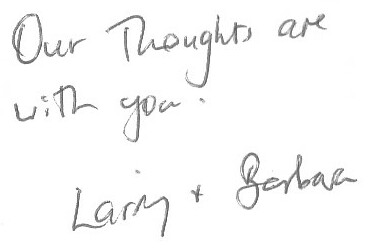 Our Thoughts are
with you.
Larry + Barbara